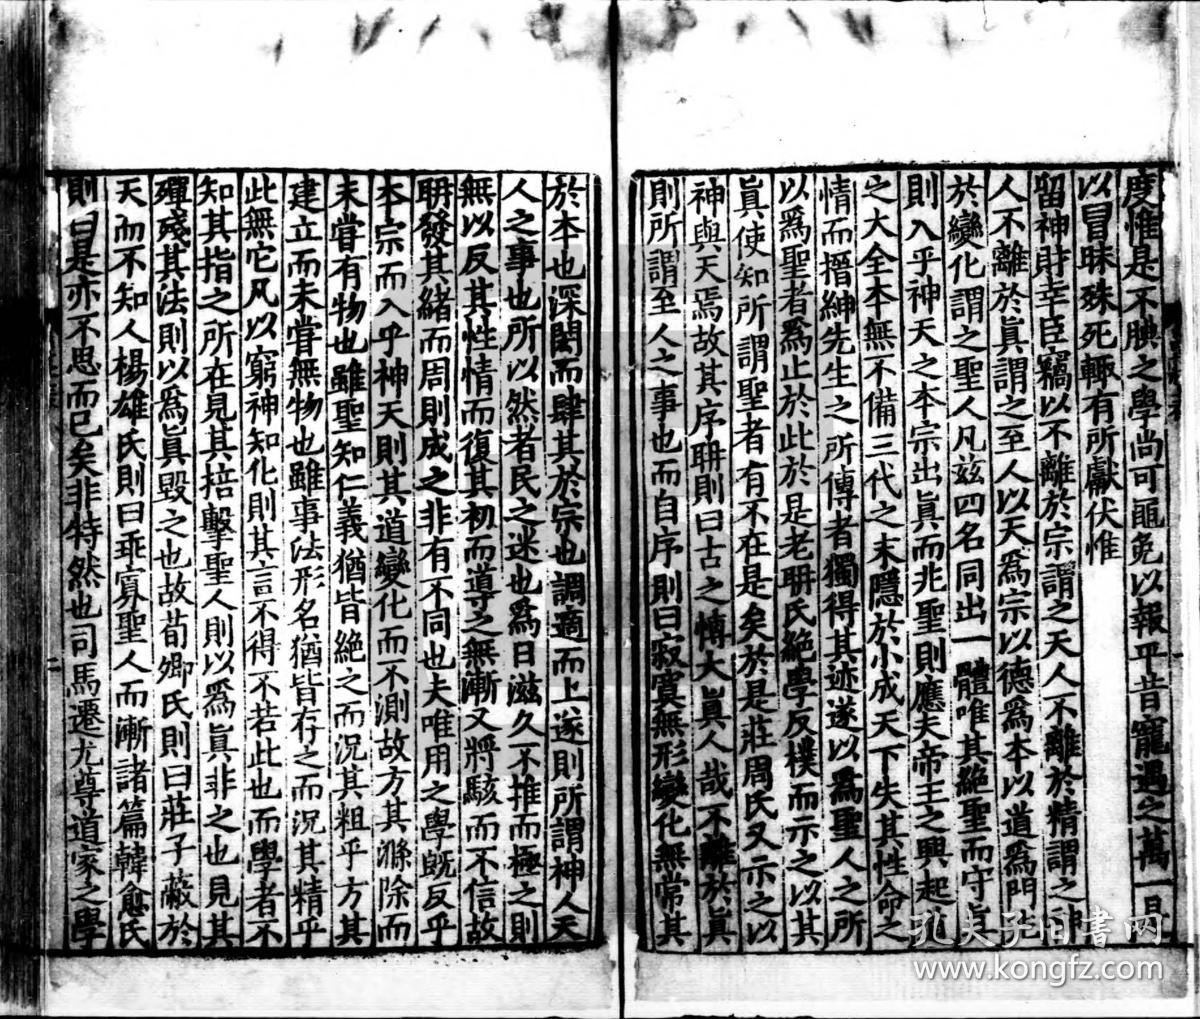 度惟是不腆之學尚可黽免以報平昔寵遇之萬一是
以冒昧殊死輙有所獻伏惟
留神財幸臣竊以不離於宗謂之天人不離於精謂之神
人不離於眞謂之至人以天爲宗以德爲本以道爲門兆
於變化謂之聖人凡茲四名同出一體唯其絶聖而守眞
則入乎神天之本宗出眞而兆聖則應夫帝王之興起
之大全本無不備三代之末隱於小成天下失其性命之
情而搢紳先生之所傳者獨得其迹遂以爲聖人之所
以爲聖者爲止於此於是老耼氏絶學反樸而示之以其
眞使知所謂聖者有不在是矣於是莊周氏又示之以
神與天焉故其序耼則曰古之博大眞人哉不離於眞
則所謂至人之事也而自序則曰寂寞無形變化無常其
於本也深閎而肆其於宗也調適而上遂則所謂神人天
人之事也所以然者民之迷也爲日滋久不推而極之則
無以反其性情而復其初而導之無漸又將駭而不信故
耼發其緒而周則成之非有不同也夫唯用之學旣反乎
本宗而入乎神天則其道變化而不測故方其滌除而
未嘗有物也雖聖知仁義猶皆絶之而況其粗乎方其
建立而未嘗無物也雖事法形名猶皆存之而況其精乎
此無它凡以窮神知化則其言不得不若此也而學者不
知其指之所在見其掊擊聖人則以爲眞非之也見其
殫殘其法則以爲眞毀之也故荀卿氏則曰莊子蔽於
天而不知人楊雄氏則曰乖寡聖人而漸諸篇韓愈氏
則曰是亦不思而已矣非特然也司馬遷尤尊道家之學
孔夫子旧书网
www.kongfz.com